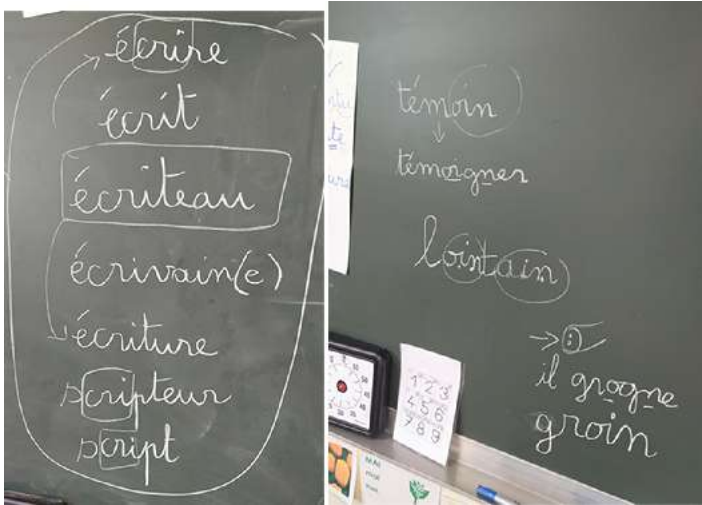 écrire
écrit
écriteau
écrivain(e)
écriture
scripteur
script
témoin
témoigner
lointain
il grogne
groin
1 2 3
4 5 6
7 8 9